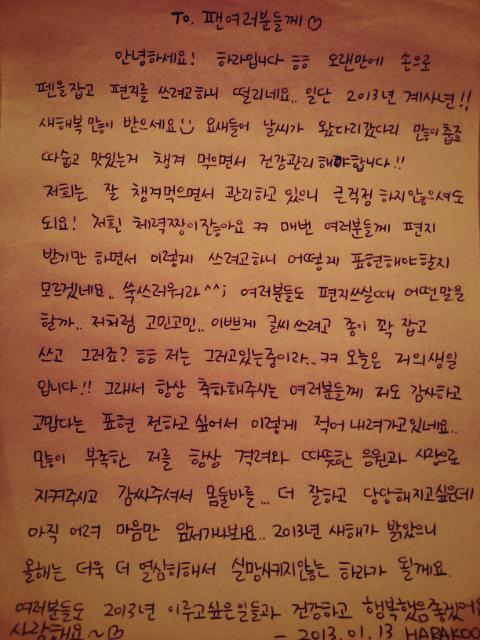 To. 팬여러분들께♡
안녕하세요! 하라입니다 ㅎㅎ 오랜만에 손으로
펜을잡고 편지를 쓰려고하니 떨리네요.. 일단 2013년 계사년!!
새해복 많이 받으세요 요새들어 날씨가 왔다리갔다리 많이춥죠
따숩고 맛있는거 챙겨 먹으면서 건강관리해야합니다!!
저희는 잘 챙겨먹으면서 관리하고 있으니 큰걱정 하지않으셔도
되요! 저흰 체력짱이잖아요 ㅋㅋ 매번 여러분들께 편지
받기만 하면서 이렇게 쓰려고하니 어떻게 표현해야할지
모르겠네요.. 쑥쓰러워라^^; 여러분들도 편지쓰실때 어떤말을
할까.. 저처럼 고민고민.. 이쁘게 글씨 쓰려고 종이 꽉 잡고
쓰고 그러죠? ㅎㅎ 저는 그러고있는중이라.. ㅋㅋ 오늘은 저의생일
입니다!! 그래서 항상 축하해주시는 여러분들께 저도 감사하고
고맙다는 표현 전하고싶어서 이렇게 적어내려가고있네요..
많이 부족한 저를 항상 격려와 따뜻한 응원과 사랑으로
지켜주시고 감싸주셔서 몸둘바를... 더 잘하고 당당해지고싶은데
아직 어려 마음만 앞서가나봐요.. 2013년 새해가 밝았으니
올해는 더욱 더 열심히해서 실망시키지않는 하라가 될게요.
여러분들도 2013년 이루고싶은일들과 건강하고 행복했음좋겠어요
사랑해요~♡ - 2013. 01. 13 HARAKOO